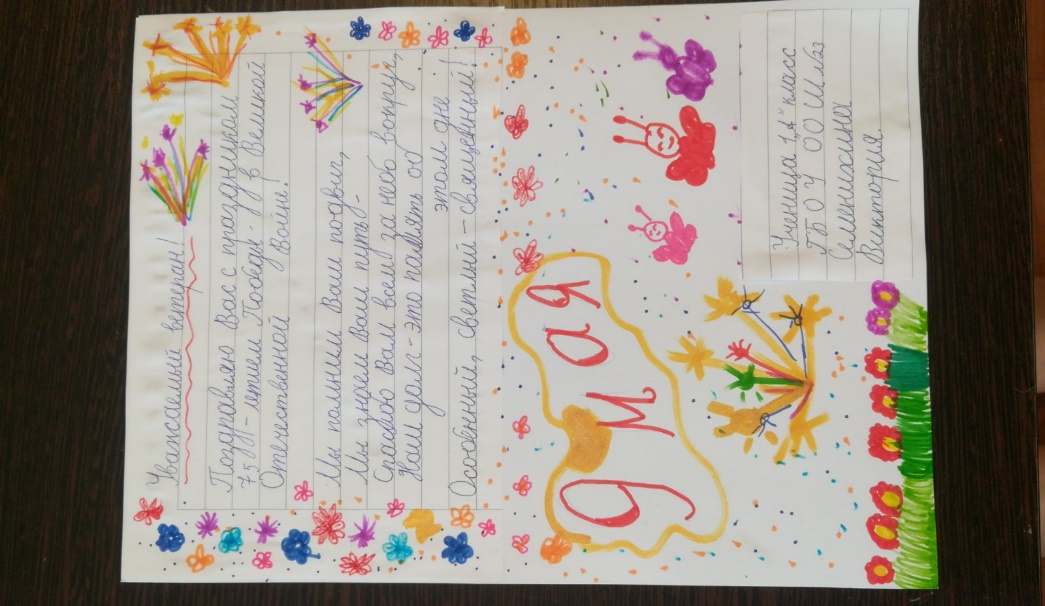 Уважаемый ветеран!
Поздравляю Вас с праздником
75 - летием Победы - у в Великой
Отечественной Войне!
Мы помним Ваш подвиг,
Мы знаем Ваш путь -
Спасибо Вам всем за небо вокруг,
Наш долг - это память об
этом дне
Особенный, светлый - священный!
9 мая
Ученица 1 „А" класс
ГБОУ ООШ №23
Селенихиной
Виктория.